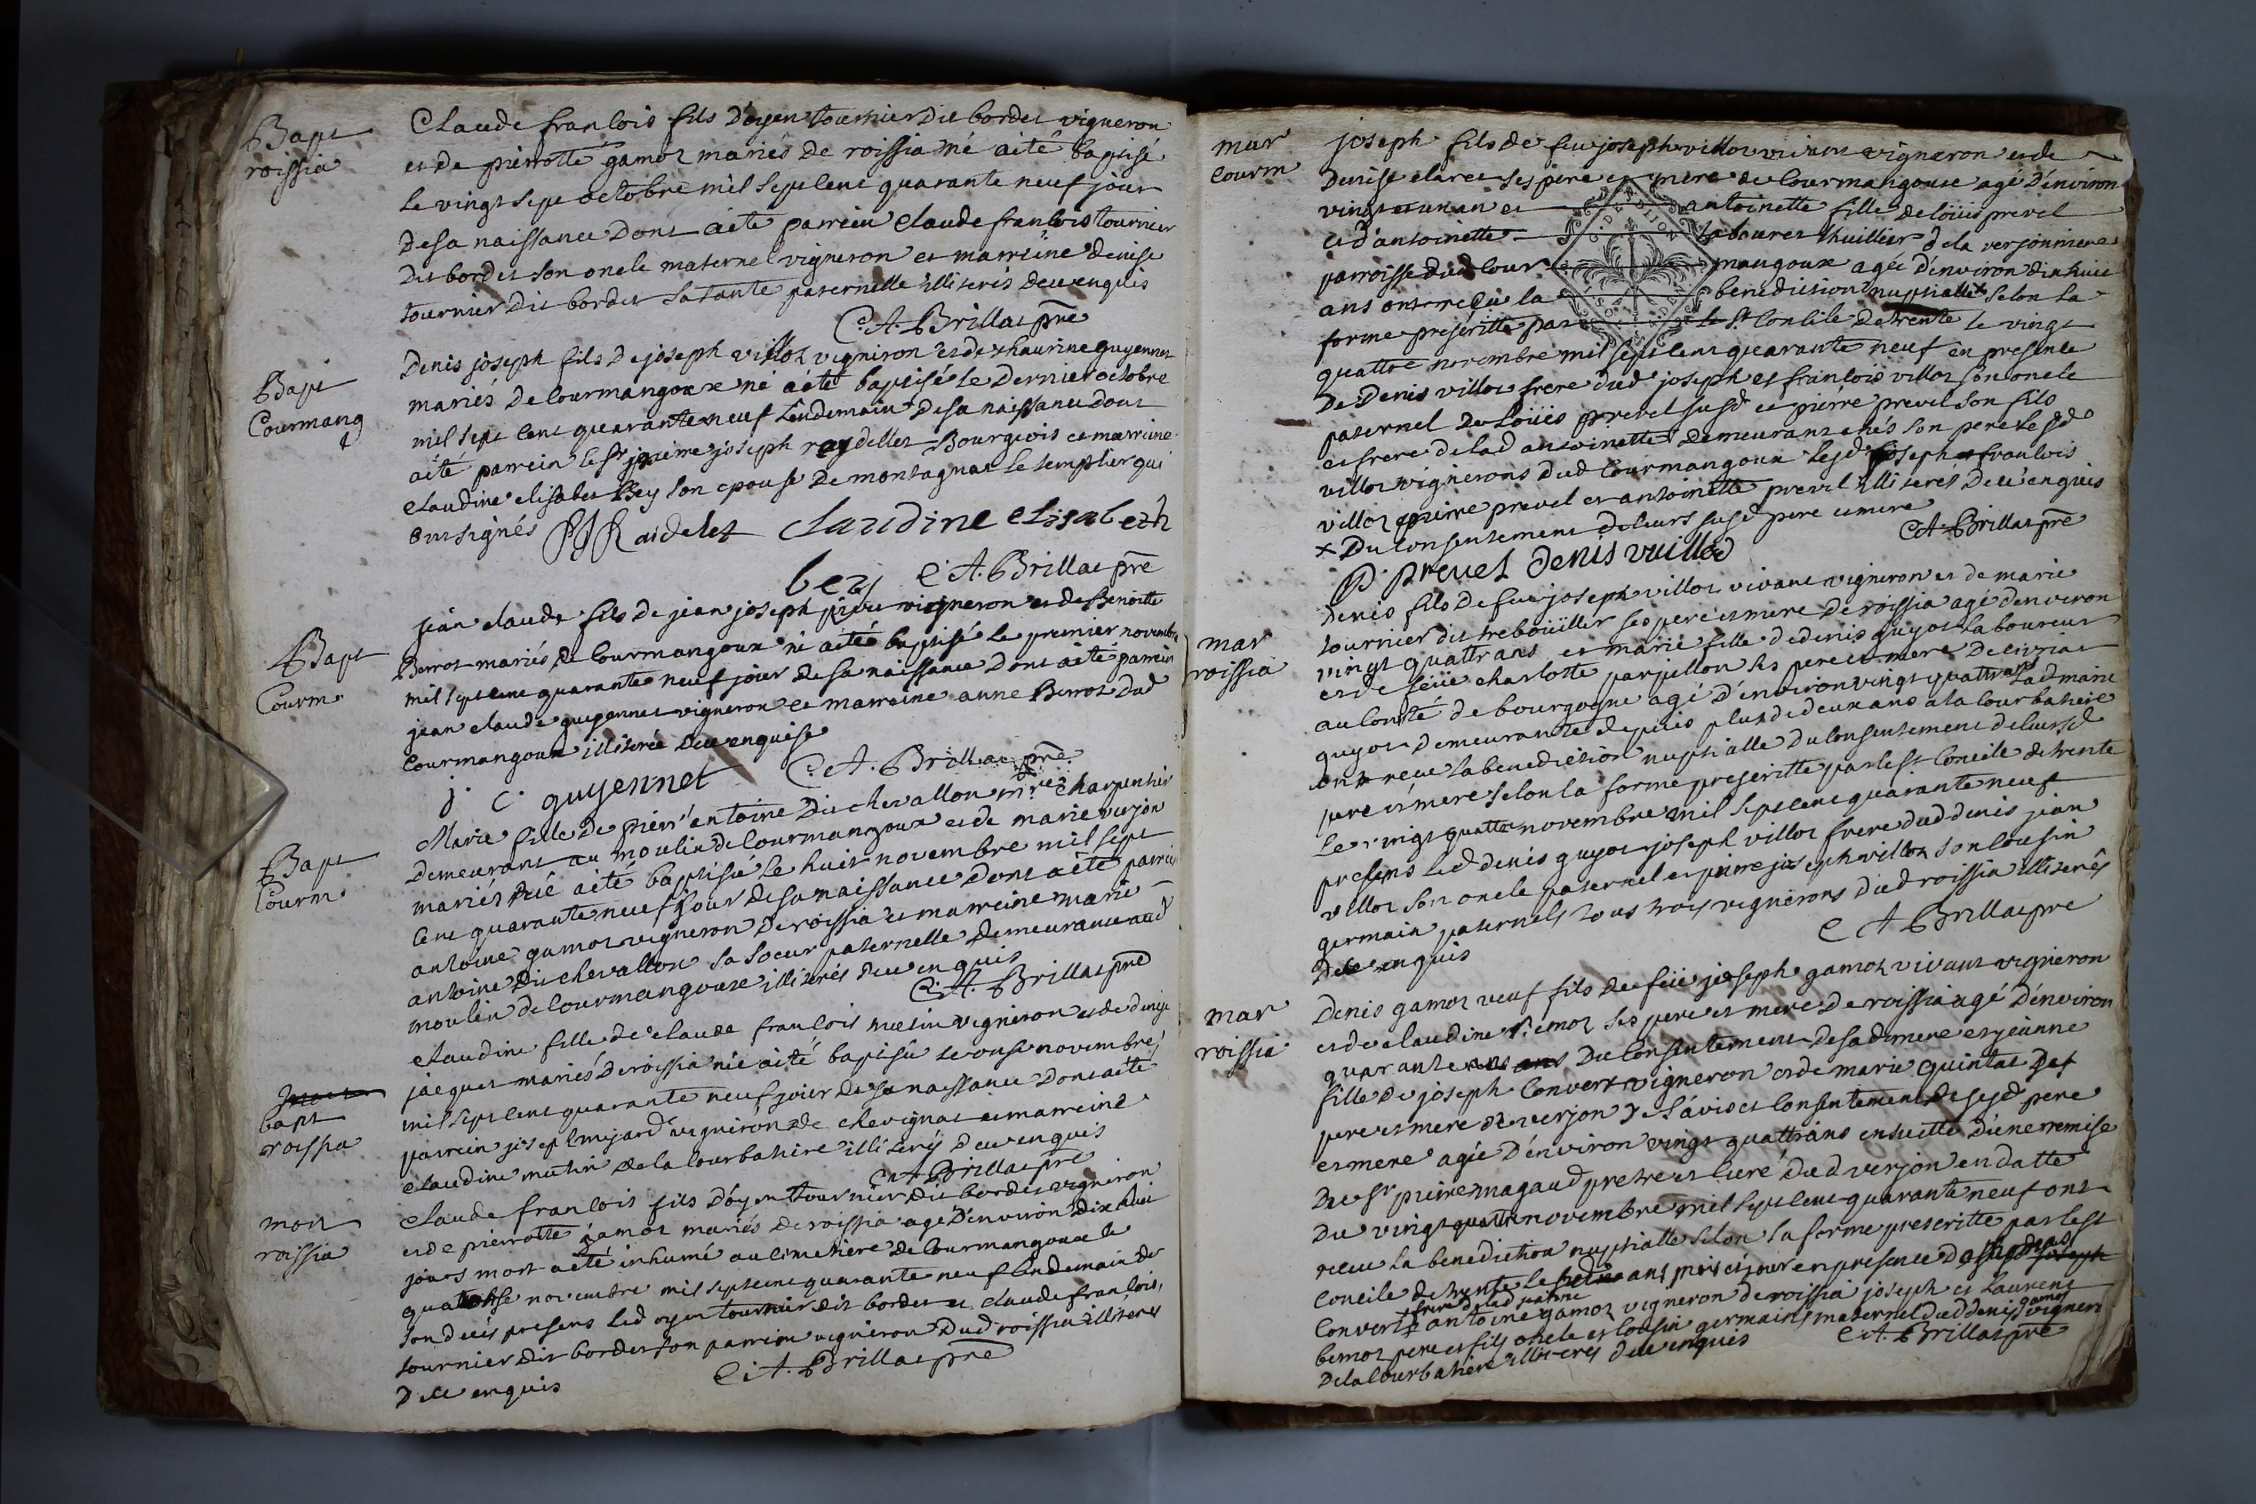 Bapt
roissia
Claude francois fils d'oyen tournier dit bordet vigneron
et de pierrotte gamoz mariés de roissia né aité baptisé
le vingt sept octobre mil sept cent quarante neuf jour
de sa naissance dont aité parrein claude francois tournier
dit bordet son oncle maternel vigneron et marreine denise
tournier dit bordet sa tante paternelle illiterés deuenquis
C. A. Brillat pre
Bapt
Courmang
Denis joseph fils de joseph villoz vigniron et de thaurine guyennet
mariés de courmangoux né aété baptisé le dernier octobre
mil sept cent quarante neuf lendemain de sa naissance dont
aété parrein le Sr pierre joseph raydellet Bourgeois et marreine
claudine elisabet Bey son epouse de montagnat le templier qui
ont signés PJ Raidelet claudine elisabeth
bey C. A. Brillat pre
Bapt
Courm.
jean claude fils de jean joseph vigneron et de Benoitte
Berrot mariés de courmangoux né aité baptisé le premier novembre
mil sept cent quarante neuf jour de sa naissance dont aété parrein
jean claude guyennet vigneron et marreine anne Berrot dud
courmangoux illiterée deuenquise
j. c. guyennet C. A. Brillat pre
Bapt
Courm.
Marie fille de pierr'entoine duchevallon mre charpentier
demeurant au moulin de courmangoux et de marie verjon
mariés née aité baptisée le huit novembre mil sept
cent quarante neuf jour de sa naissance dont aété parrein
antoine gamoz vigneron de roissia et marreine marie
antoine duchevallon sa soeur paternelle demeurante aud
moulin de courmangoux illiterés deuenquis
C. A. Brillat pre
bapt
roissia
claudine fille de claude francois mutin vigneron et de denise
jacquet mariés de roissia née aité baptisée le onse novembre
mil sept cent quarante neuf jour de sa naissance dont aété
parrein joseph mijard vigneron de chevignat et marreine
claudine mutin de la courbatiere illiterés deuenquis
C. A. Brillat pre
mort
roissia
claude francois fils d'oyen tournier dit bordet vigneron
et de pierrotte gamoz mariés de roissia agé d'environ dix huit
jours mort aété inhumé au cimetiere de courmangoux le
quatorse novembre mil sept cent quarante neuf lendemain de
son deces presens led oyen tournier dit bordet et claude francois
tournier dit bordet son parrein vigneron dud roissia illiteres
deuenquis C. A. Brillat pre
mar
courm
joseph fils de feu joseph villoz vivant vigneron et de
denise claret ses pere et mere de courmangoux agé d'environ
vingt et un an et antoinette fille de loüis prevel
et d'antoinette laboures thuillier de la verjonniere
parroisse dud cour mangoux agée d'environ dix huit
ans ont reçu la benediction nuptialle selon la
forme prescritte par le St concile de trente le vingt
quattre novembre mil sept cent quarante neuf en presence
de denis villoz frere dud joseph et francois villoz son oncle
paternel de loüis prevel susd et pierre prevel son fils
et frere de lad antoinette demeurant chés son pere le sd
villoz vignerons dud courmangoux lesd joseph et francois
villoz pierre prevel et antoinette prevel illiterés deuenquis
x du consentement de leurs susd pere et mere C. A. Brillat pre
P. prevel denis vuillod
mar
roissia
denis fils de feu joseph villoz vivant vigneron et de marie
tournier dit treboüillet ses pere et mere de roissia agé d'environ
vingt quattr ans et marie fille de denis guyot laboureur
et de feüe charlotte parjellon ses pere et mere de civria
au comté de bourgogne agé d'environ vingt quattr ans lad marie
guyot demeurante depuis plus de deux ans a la courbatiere
ont receu la benediction nuptialle du consentement de leursd
pere et mere selon la forme prescritte par le st concile de trente
le vingt quattre novembre mil sept cent quarante neuf
presens led denis guyot joseph villoz frere dud denis jean
villoz son oncle paternel et pierre joseph villoz son cousin
germain paternels tous trois vignerons dud roissia illiterés
deuenquis C A Brillat pre
mar
roissia
Denis gamoz veuf fils de feüe joseph gamoz vivant vigneron
et de claudine bemoz ses pere et mere de roissia agé d'environ
quarante ans du consentement de sad mere et jeanne
fille de joseph convert vigneron et de marie quintat des
pere et mere de verjon de l'avis et consentement de sesd pere
et mere agée d'environ vingt quattr ans ensuitte d'une remise
du Sr pierre magaud pretre et curé dud verjon en datte
du vingt quattre novembre mil sept cent quarante neuf ont
receu la benediction nuptialle selon la forme prescritte par le st
concile de trente le an mois et jour en presence
convert frere de lad jeanne antoine gamoz vigneron de roissia joseph et laurent
bemoz pere et fils oncle et cousin germain maternel dud denis gamoz vignerons
de la courbatiere illiteres deuenquis C. A. Brillat pre